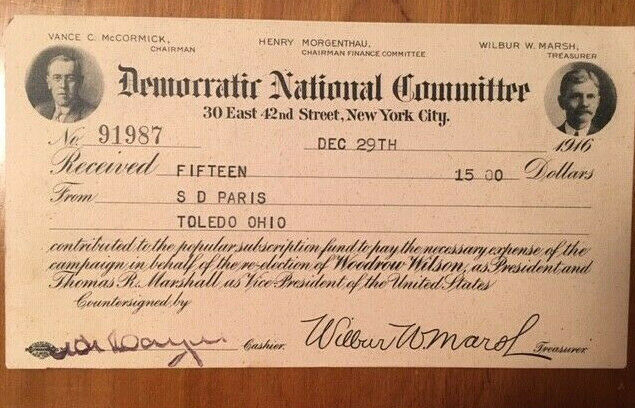 VANCE C. McCORMICK, CHAIRMAN
HENRY MORGENTHAU, CHAIRMAN FINANCE COMMITTEE
WILBUR W. MARSH, TREASURER
Democratic National Committee
30 East 42nd Street, New York City.
No. 91987 DEC 29TH 1916
Received FIFTEEN 15 00 Dollars
From S D PARIS
TOLEDO OHIO
contributed to the popular subscription fund to pay the necessary expense of the
campaign in behalf of the re-election of Woodrow Wilson, as President and
Thomas R. Marshall as Vice President of the United States
Countersigned by
Cashier. Wilbur W Marsh Treasurer